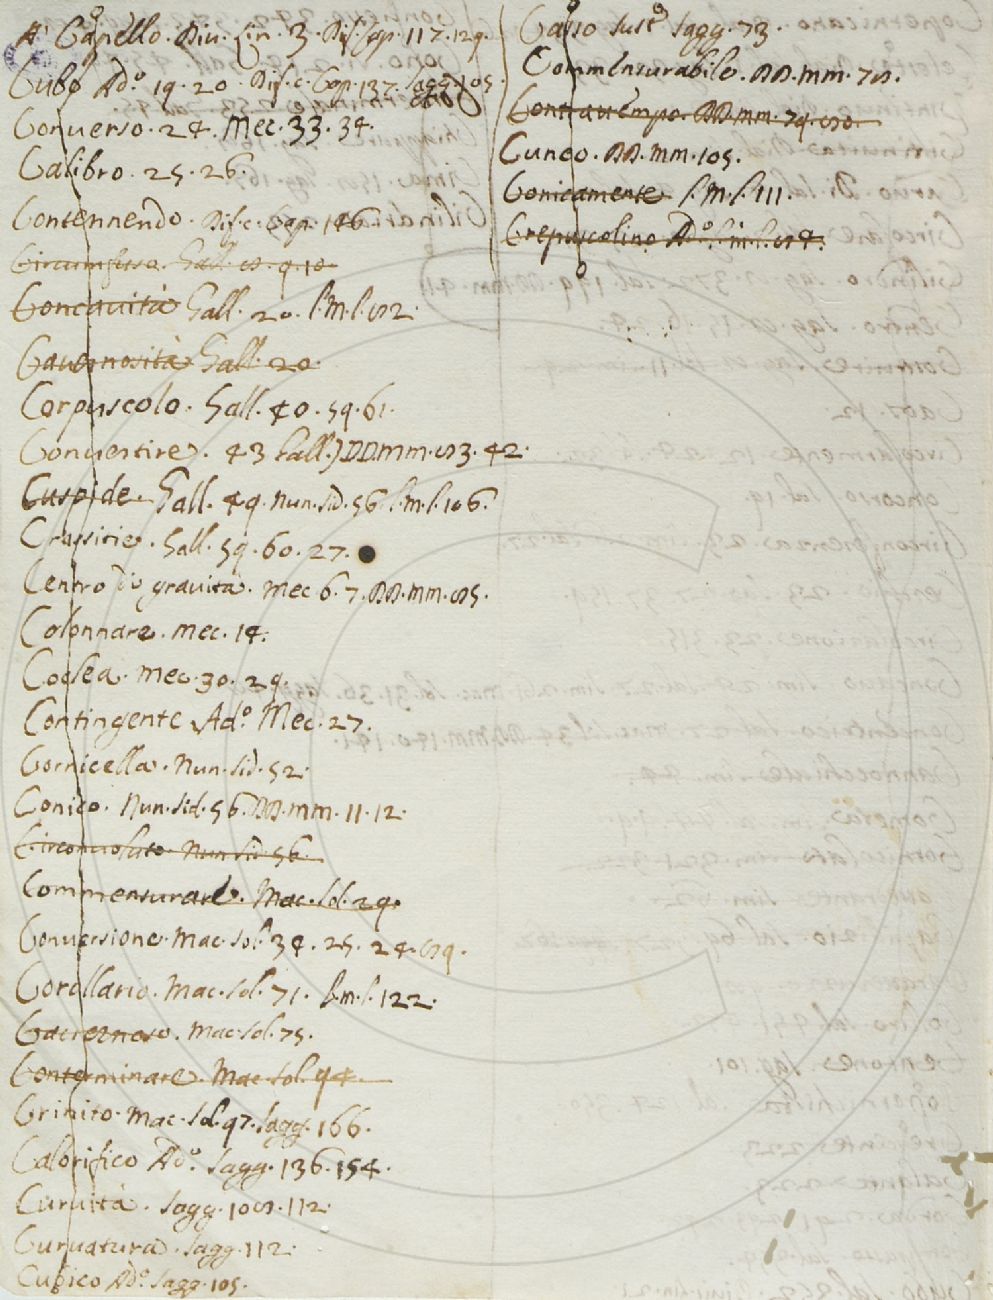 Capello. Diu. Lin. 3. Dif. cap. 117. 129.
Cubo Ad.º 19. 20. Dif. c. Cap. 137. Sagg. 105.
Conuerso. 24. Mec. 33. 34.
Calibro. 25. 26.
Contennendo. Dif. c. Cap. 146.
Circumfusa. Gall. 8. 9. 10
Concauità Gall. 20. l. m. l. 82.
Cauernosità Gall. 20.
Corpuscolo. Gall. 40. 59. 61.
Conuertire. 43 Gall.) DD. mm. 83. 42.
Cuspide. Gall. 49. Nun. sid. 56. l. m. l. 106.
Crassitie. Gall. 59. 60. 27.
Centro di grauità. Mec. 6. 7. DD. mm. 85.
Colonnare. Mec. 14.
Coclea. Mec. 30. 29.
Contingente Ad.º Mec. 27.
Cornicella. Nun. sid. 52.
Conico. Nun. sid. 56. DD. mm. 11. 12.
Circonuoluto. Nun. sid. 56.
Commensurare. Mac. sol. 29.
Conuersione. Mac. sol. 34. 25. 24. 89.
Corollario. Mac. sol. 71. l. m. l. 122.
Cauernoso. Mac. sol. 75.
Conterminare. Mac. sol. 94.
Crinito. Mac. sol. 97. Sagg. 166.
Calorifico Ad.º Sagg. 136. 154.
Curuità. Sagg. 108. 112.
Curuatura. Sagg. 112.
Cubico Ad.º Sagg. 105.
Caso Sust.º Sagg. 73.
Commensurabile. DD. mm. 78.
Contrattempo. DD. mm. 79. 80.
Cuneo. DD. mm. 105.
Conicamente l. m. l. 111.
Crepuscolino Ad.º l. m. l. 84.